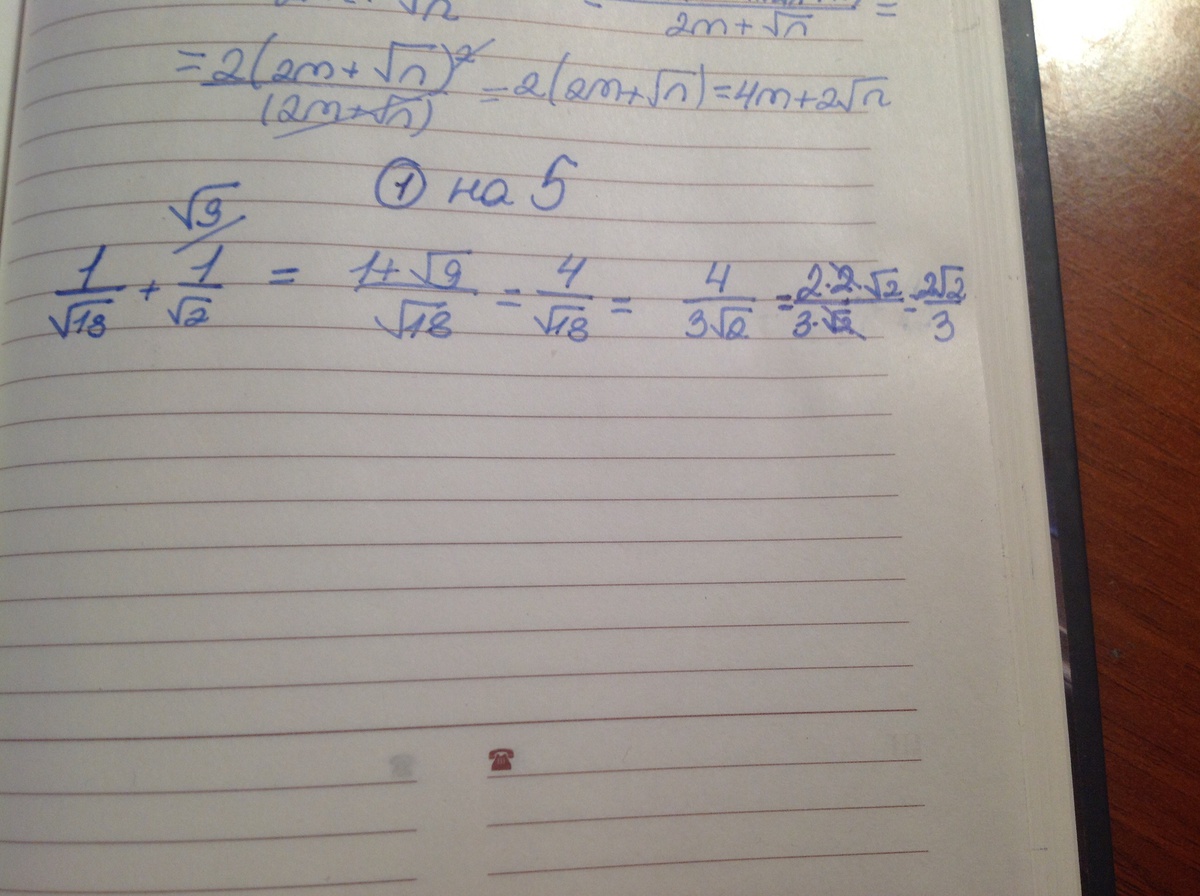 √n 2m+√n =
= 2(2m+√n)² / (2m+√n) = 2(2m+√n) = 4m+2√n
① на 5
√9
1/√18 + 1/√2 = (1+√9)/√18 = 4/√18 = 4/(3√2) = (2·2·√2)/(3·√2) = 2√2/3